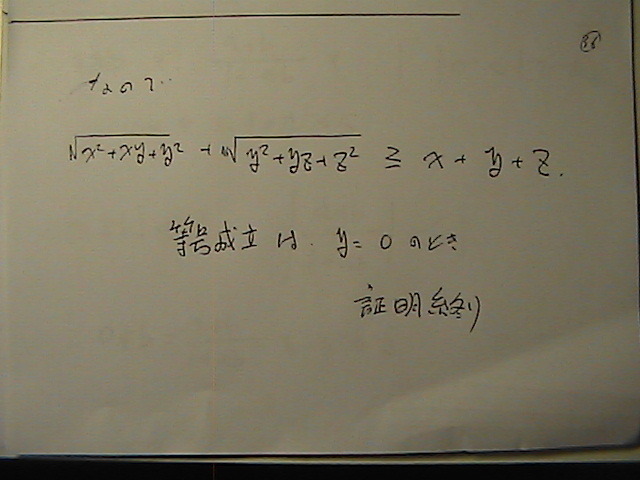 なので‥
√x²+xy+y² + √y²+yz+z² ≧ x + y + z.
等号成立は. y = 0 のとき
証明終り